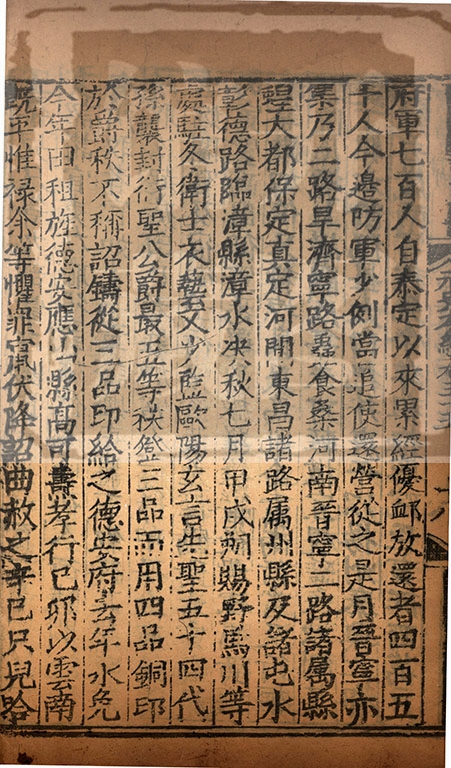 府軍七百人自泰定以來累經優卹放還者四百五
十人今邊防軍少例當追使還營從之是月晉寧亦
集乃二路旱濟寧路蟲食桑河南晉寧二路諸属縣
蝗大都保定真定河間東昌諸路属州縣及諸屯水
彰德路臨漳縣漳水决秋七月甲戌朔賜野馬川等
處駐冬衛士衣藝文少監歐陽玄言先聖五十四代
孫襲封衍聖公爵最五等秩登三品而用四品銅印
於爵秩不稱詔鑄從三品印給之德安府去年水免
今年田租旌德安應山縣高可燾孝行己卯以雲南
既平惟禄余等懼罪竄伏降詔曲赦之辛巳只兒哈